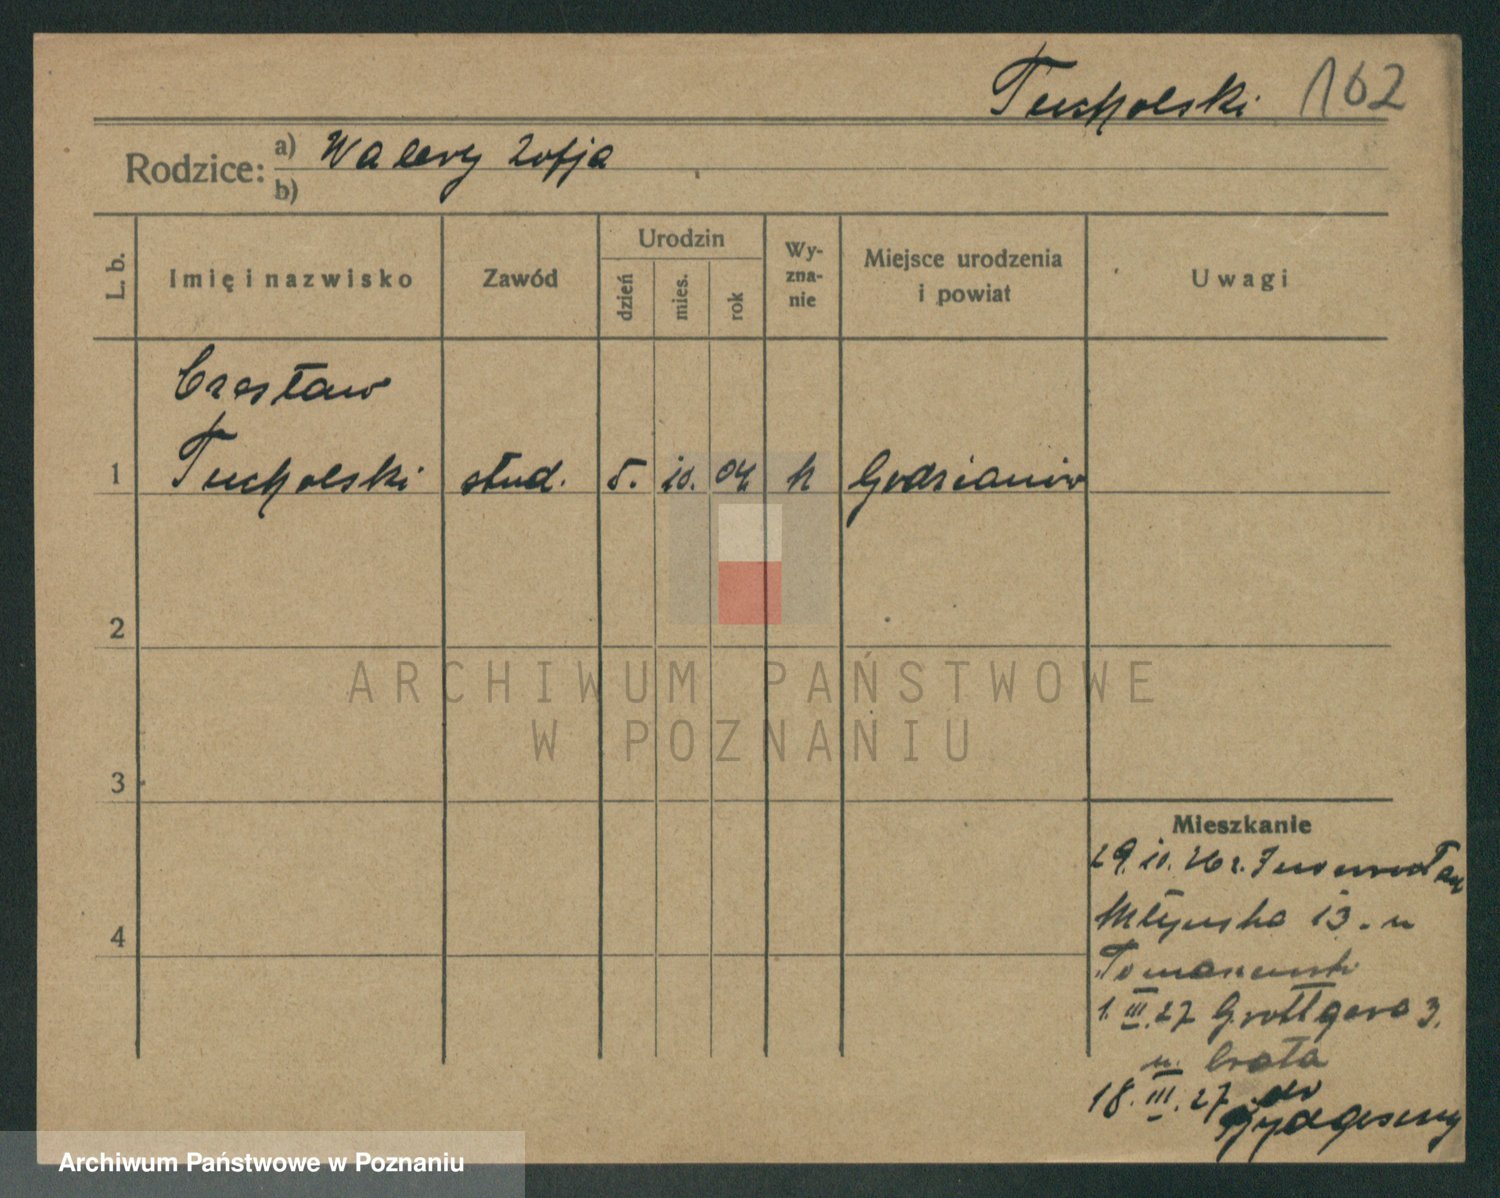 Tucholski 162
Rodzice: a) Walery Zofja
b)
L. b.
Imię i nazwisko
Zawód
Urodzin
dzień
mies.
rok
Wy-
zna-
nie
Miejsce urodzenia
i powiat
Uwagi
Czesław
1 Tucholski stud. 5. 10. 04. k Godzianów
2
3
4
ARCHIWUM PAŃSTWOWE
W POZNANIU
Mieszkanie
29. 10. 26 r. Inowrocław
Młyńska 13. u
Tomaszewski
1. III. 27 Grottgera 3.
u. brata
18. III. 27. do
Bydgoszczy
Archiwum Państwowe w Poznaniu